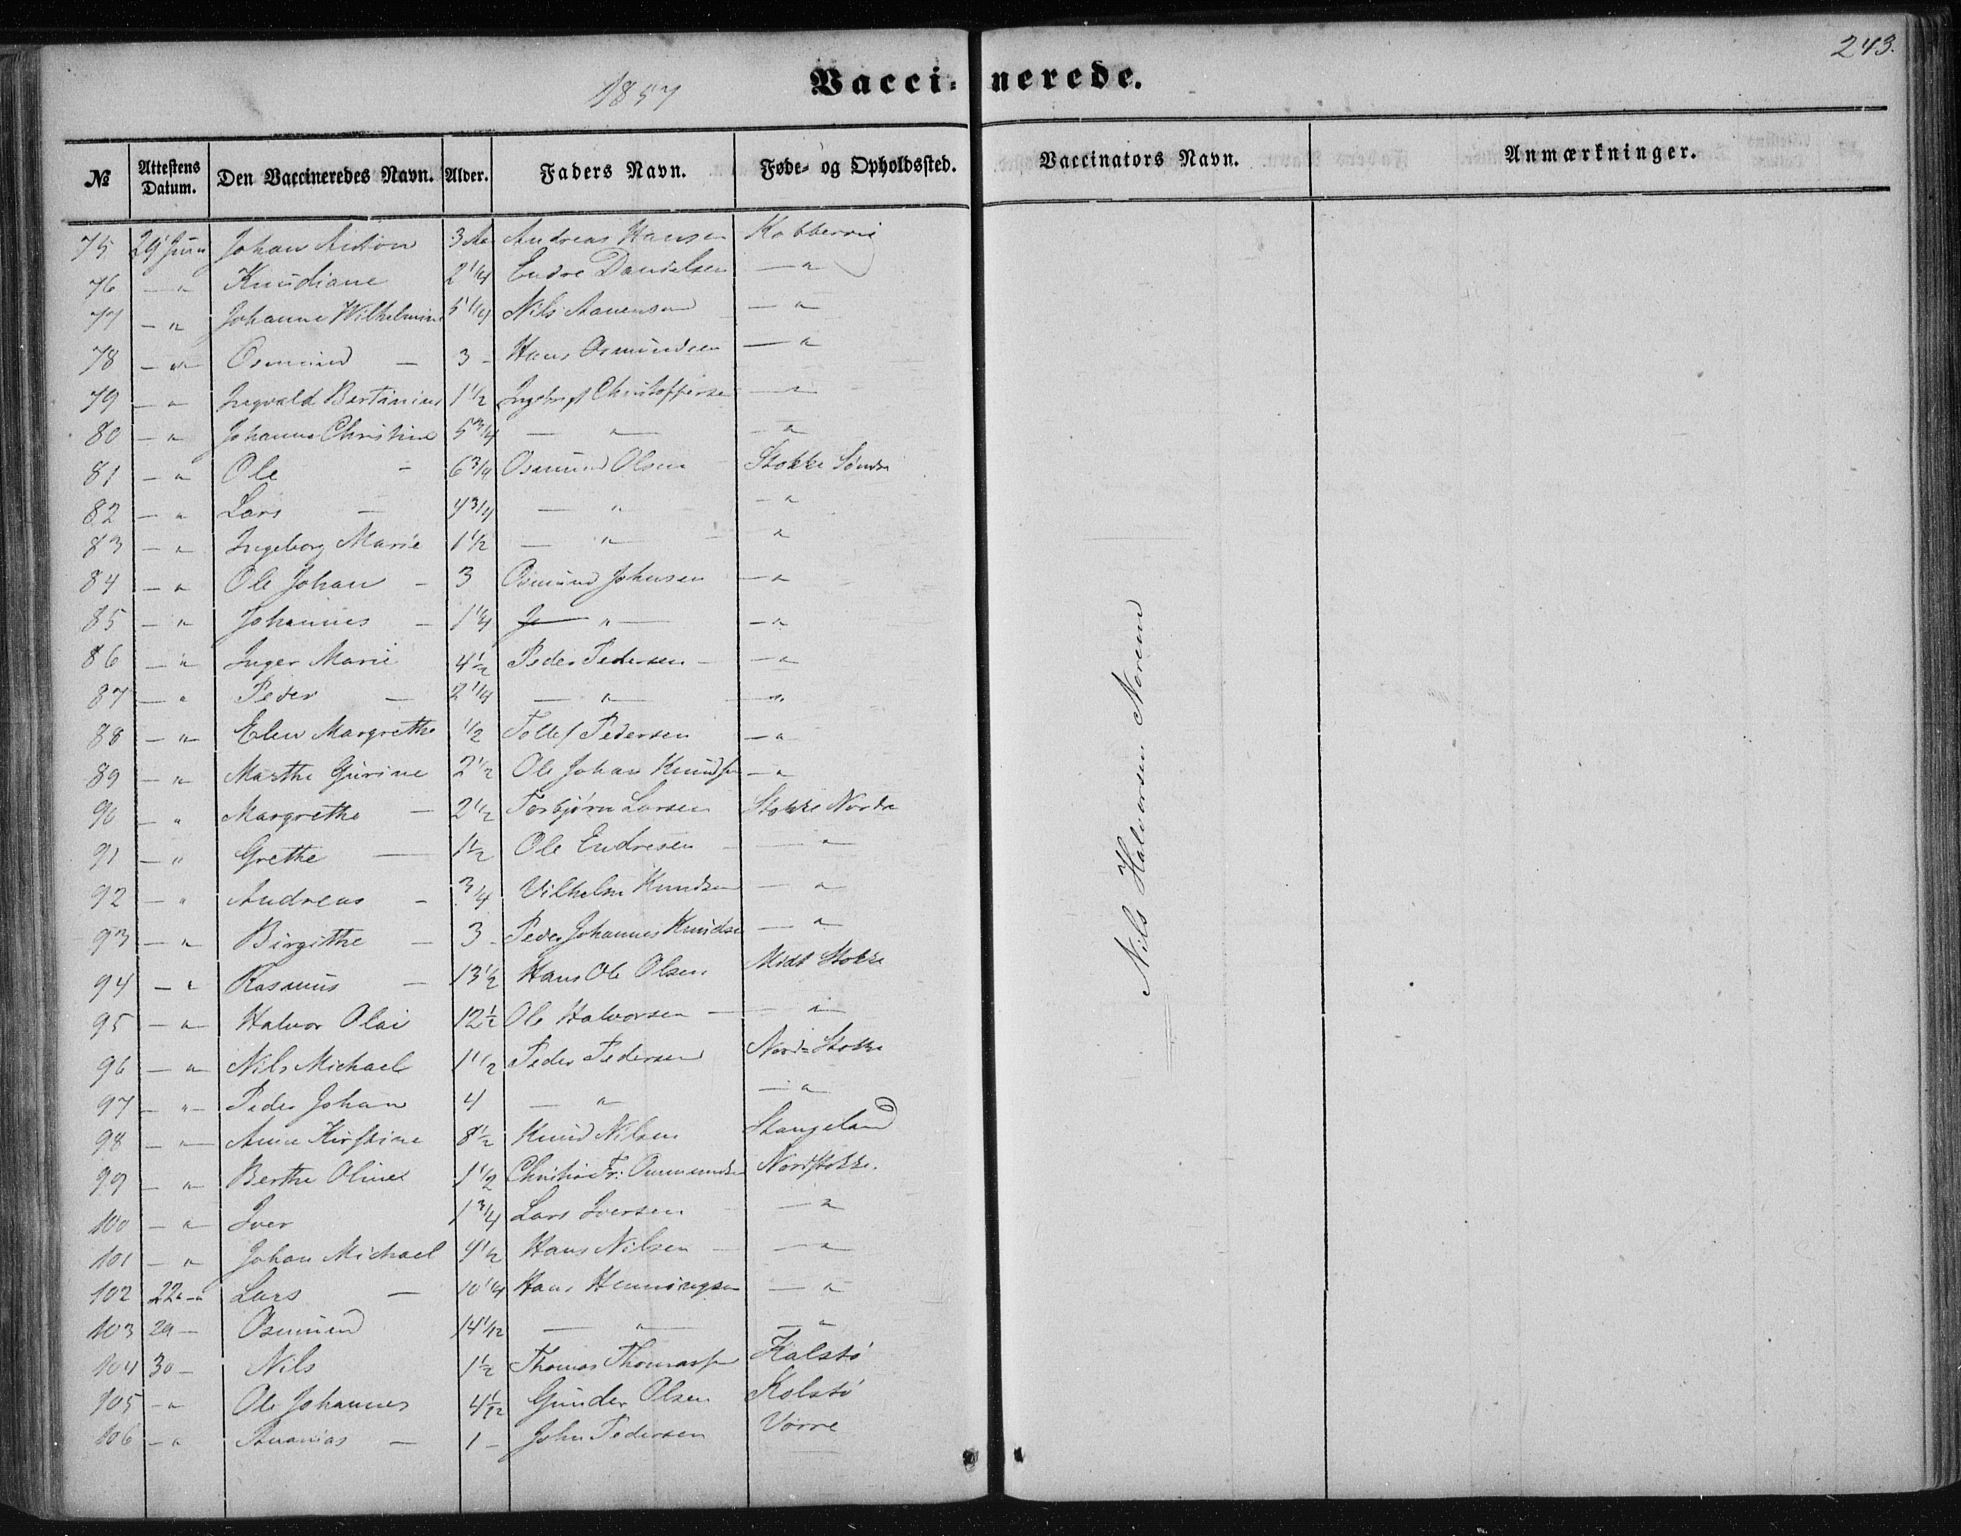 243.
1857
Vaccinerede.
№ Attestens Datum. Den Vaccineredes Navn. Alder. Faders Navn. Føde- og Opholdssted. Vaccinators Navn. Anmærkninger.
75 29 Juni Johan Anton 3 Aa Andreas Hansen Kobbervig
76 — " Knudiane 2 1/4 Endre Danielsen — "
77 — " Johanne Wilhelmine 5 1/4 Nils — "
78 — " Osmund — 3 - Hans Osmundsen — "
79 — " Ingvald Bertinius 1 1/2 Ingebrigt Christoffersen — "
80 — " Johanne Christine 5 3/4 — " — — "
81 — " Ole - 6 3/4 Osmund Olsen Stokke Søndre
82 — " Lars — 4 3/4 — " — "
83 — " Ingeborg Marie 1 1/2 — " — "
84 — " Ole Johan - 3 Osmund Johnsen — "
85 — " Johannes - 1 1/4 — " — — "
86 — " Inger Marie 4 1/2 Peder Pedersen — — "
87 — " Peder — 2 1/4 — " — — "
88 — " Elen Margrethe 1/2 Tollef Pedersen — "
89 — " Marthe Gurine 2 1/2 Ole Johan Knudsen — "
90 — " Margrethe — 2 1/2 Torbjørn Larsen Stokke Nordre
91 — " Grethe — 1 1/2 Ole Endresen — "
92 — " Andreas - 3/4 Vilhelm Knudsen — "
93 — " Birgithe - 3 - Peder Johannes Knudsen — "
94 — " Rasmus - 13 1/2 Hans Ole Olsen Midt Stokke
95 — " Halvor Olai 12 1/2 Ole Halvorsen — — "
96 — " Nils Michael 1 1/2 Peder Pedersen Nord-Stokke
97 — " Peder Johan 4 — " — "
98 — " Anne Kirstine 8 1/2 Knud Nilsen Stangeland
99 — " Berthe Oline 1 1/2 Christian Fr: Nordstokke.
100 — " Iver 1 3/4 Lars Iversen — "
101 — " Johan Michael 4 1/2 Hans Nilsen — — "
102 22 - " Lars — 10 1/4 Hans Henningsen — "
103 29 — Osmund 14 1/12 — " — — "
104 30 — Nils 1 1/2 Thomas Thomassen Kalstø
105 — " Ole Johannes 4 1/12 Gunder Olsen Kolstø
106 — " Ananias — 1 - John Pedersen Vorre
Nils Halvorsen Norem